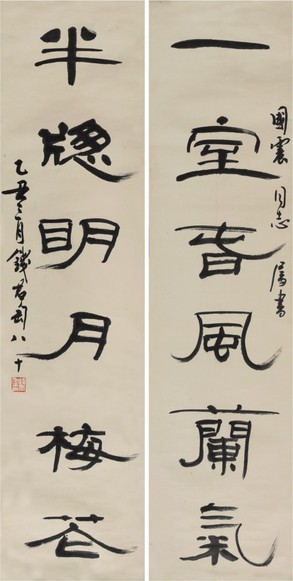 一室旾風蘭氣
國震同志属書
半牕眀月梅花
乙丑三月錢君匋八十